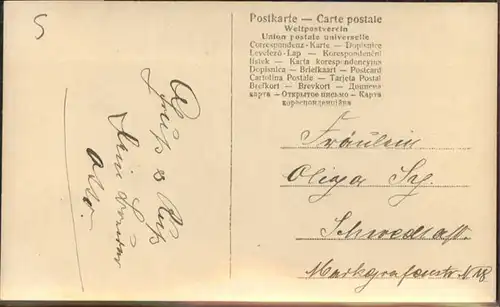 5
Postkarte – Carte postale
Weltpostverein
Union postale universelle
Correspondenz-Karte – Dopisnice
Levelező-Lap – Korespondenční
lístek – Karta korespondencyjna
Dopisnica – Briefkaart – Postcard
Cartolina Postale – Tarjeta Postal
Brefkort – Brevkort – Дописна
карта – Открытое письмо – Карта
кореспонденційна
Gruß & Kuß
Dein
Otto.
Fräulein
Schwedt a/O.
Markgrafenstr. N 18